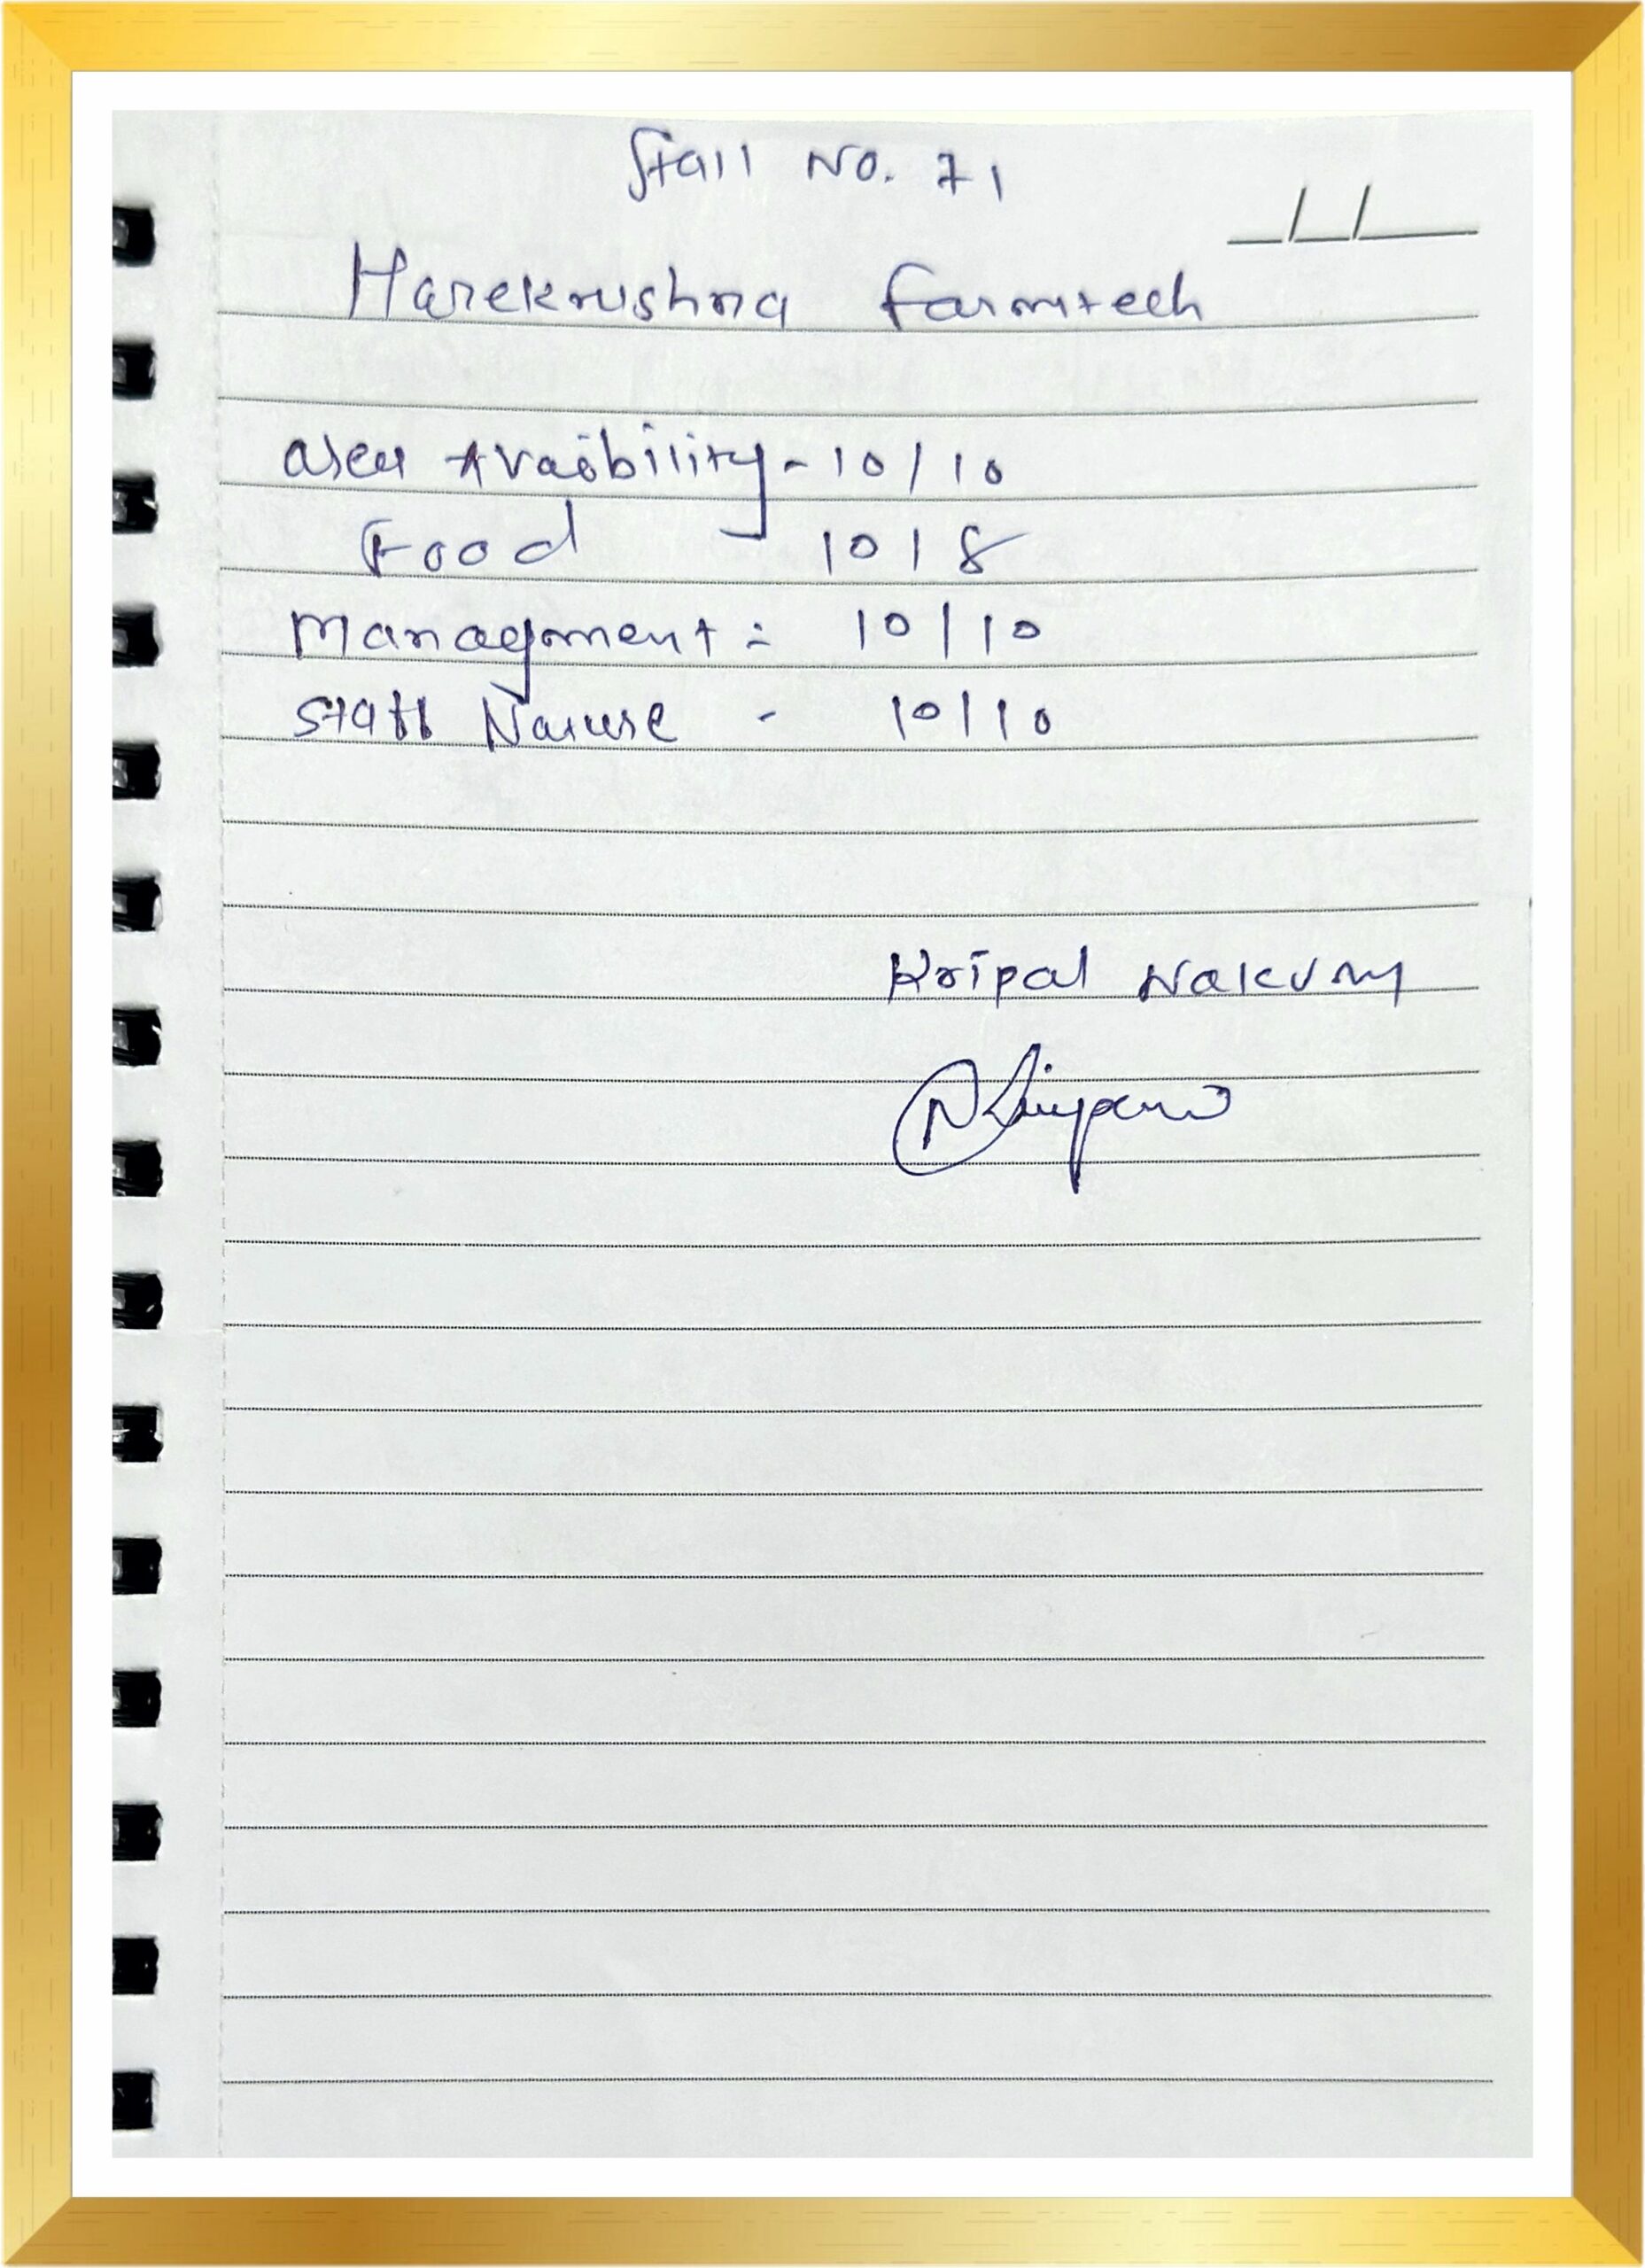 Stall No. 71
__/__/____
Harekrushna farmtech
Area Avaibility - 10/10
Food - 10/8
Managment :- 10/10
Staff Nature - 10/10
Kripal Nakum